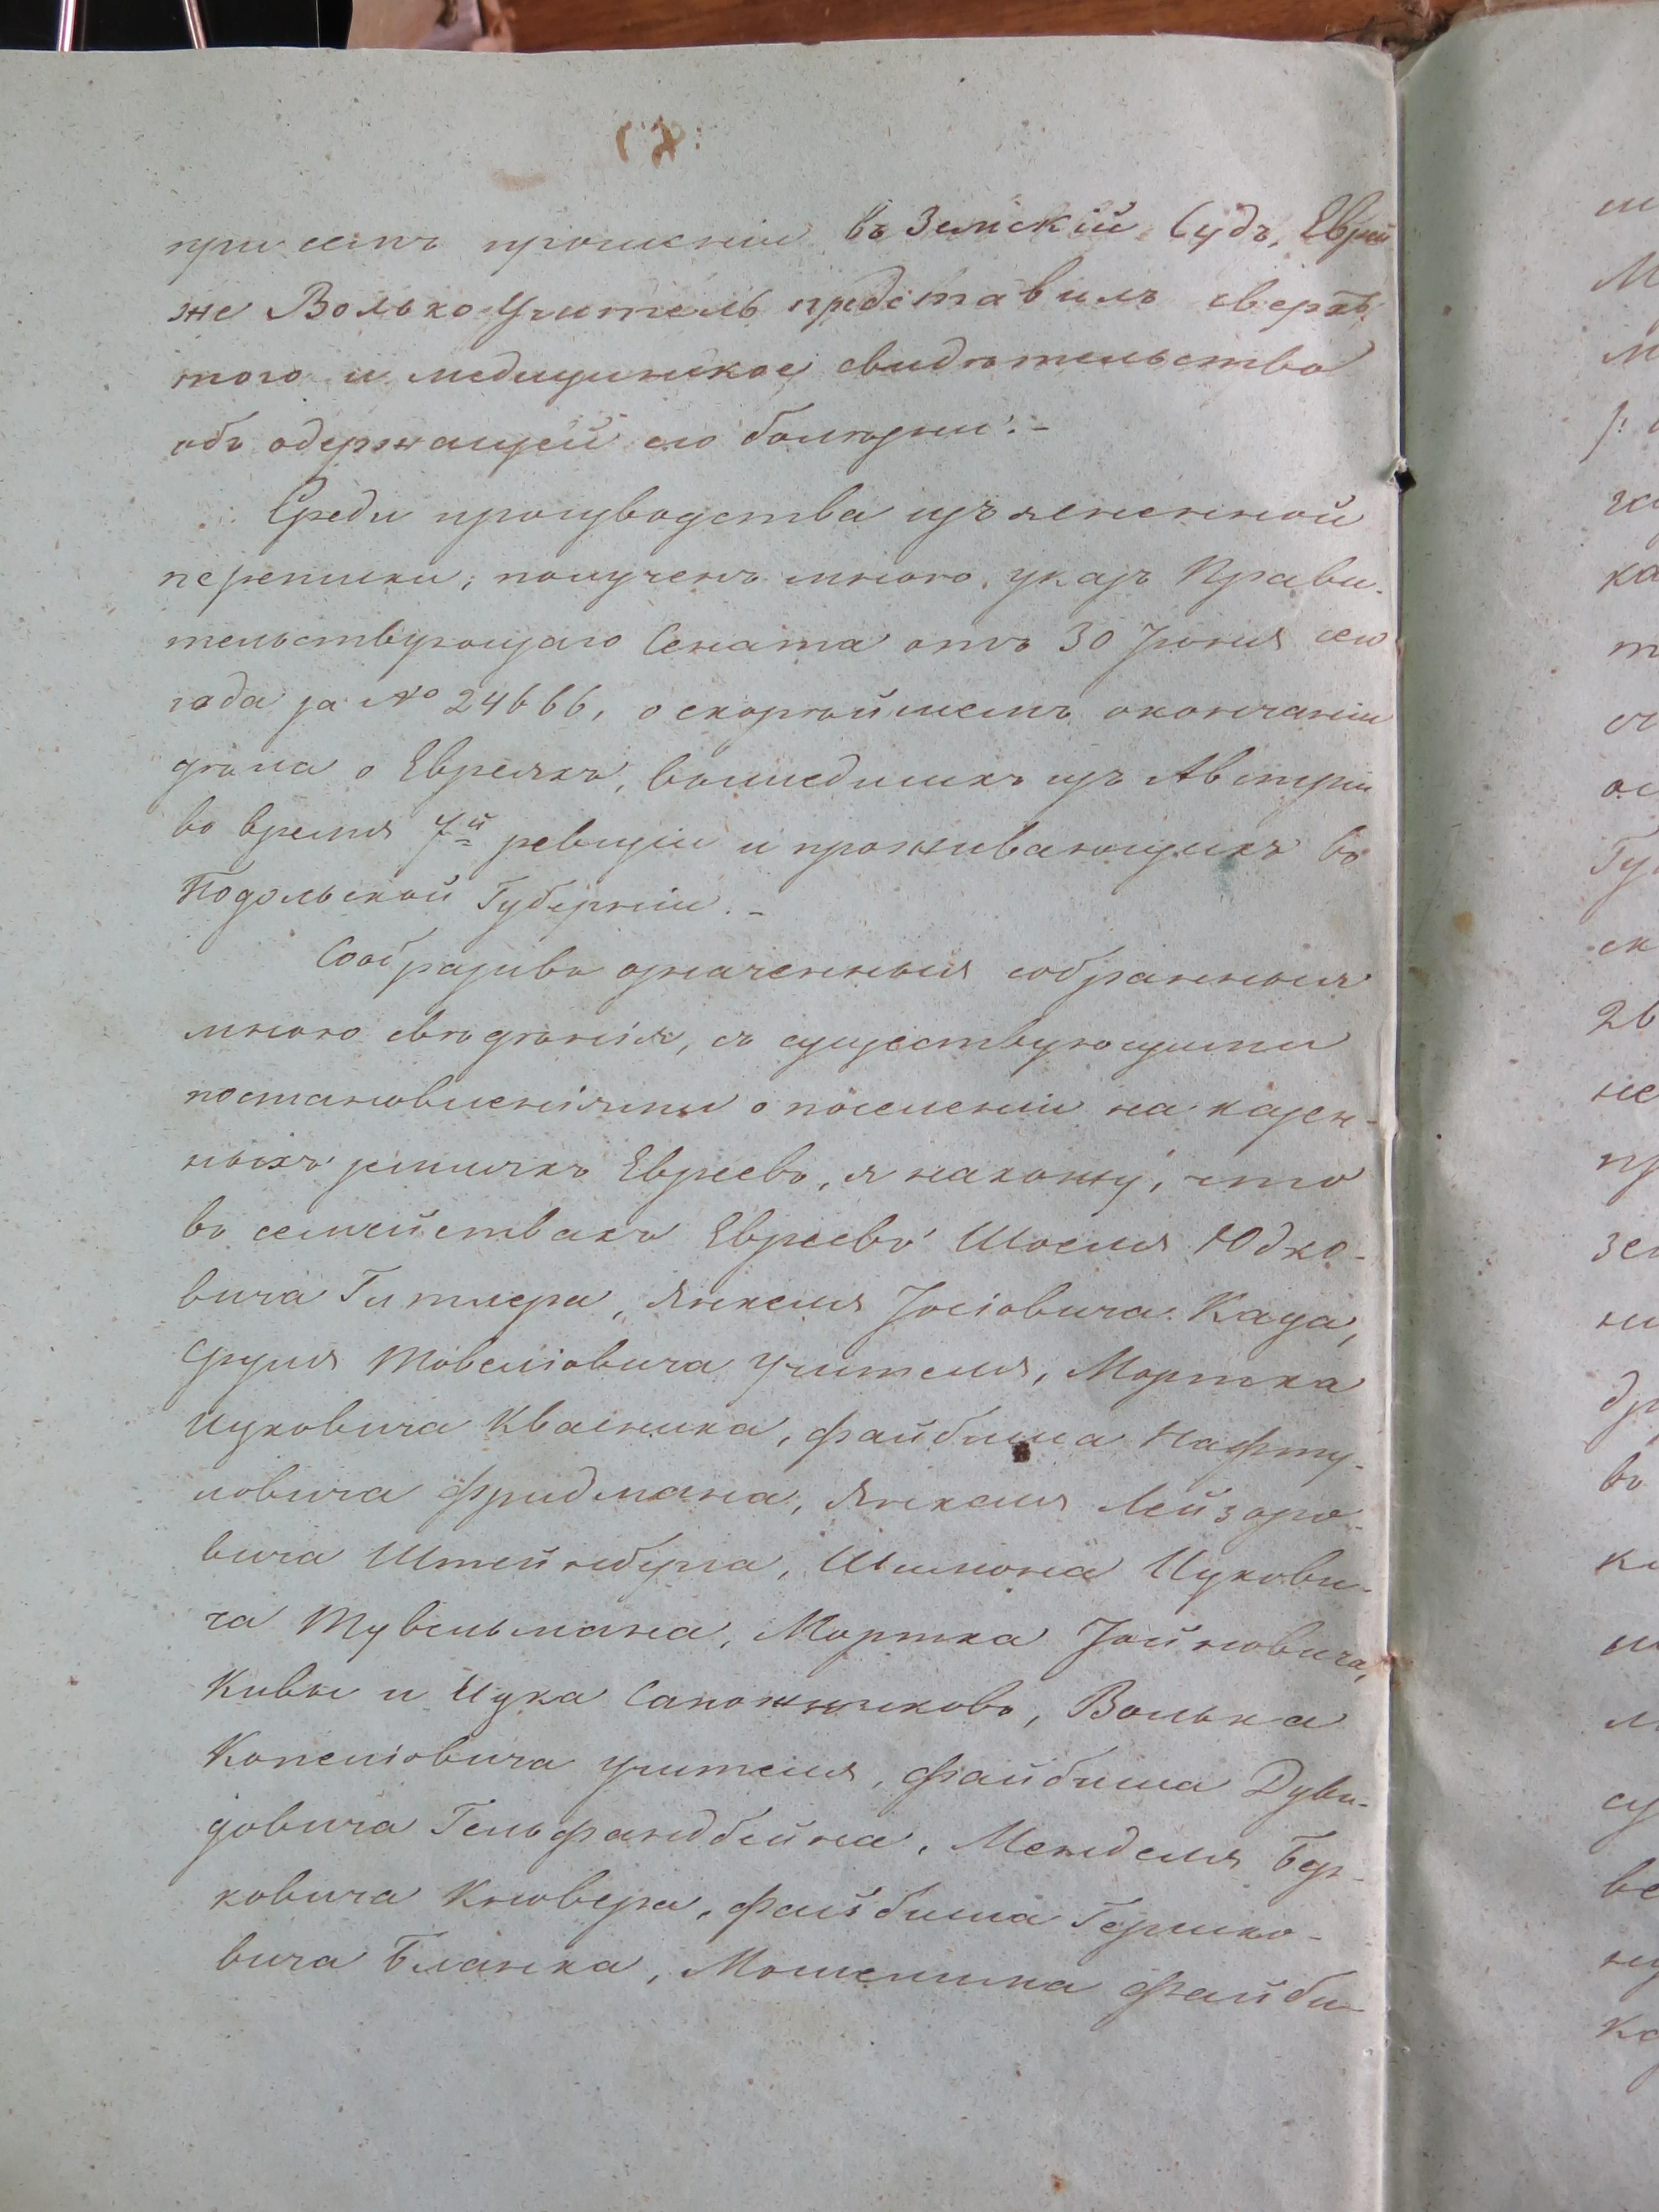 при семъ прошеніи въ Земскій Судъ, Еврей
же Волько Учитель представилъ сверхъ
того и медицинское свидѣтельство
объ одержащей его болѣзни.-
Среди производства изъясненной
переписки, полученъ мною указъ Прави-
тельствующаго Сената отъ 30 Іюня сего
года за № 24666, о скорѣйшемъ окончаніи
дѣла о Евреяхъ, вошедшихъ изъ Австріи
во время 7й ревизіи и проживающихъ въ
Подольской Губерніи.-
Сообразивъ означенныя собранныя
мною свѣдѣнія, съ существующими
постановленіями о поселеніи на казен-
ныхъ земляхъ Евреевъ, я нахожу, что
въ семействахъ Евреевъ Шоеля Юдко-
вича Гитлера, Янкеля Іосіовича Каца,
Сруля Товеліовича Учителя, Мортка
Ицковича Квасника, Файбиша Нафту-
ловича Фридмана, Янкеля Лейзоро-
вича Штейнберга, Шимона Ицкови-
ча Тувельмана, Мортка Іойновича,
Кивы и Ицка Сапожниковъ, Волька
Копеліовича Учителя, Файбиша Дуви-
довича Гельфандбейна, Менделя Бер-
ковича Кновера, Файбиша Гершко-
вича Бланка, Мошелина Файби-